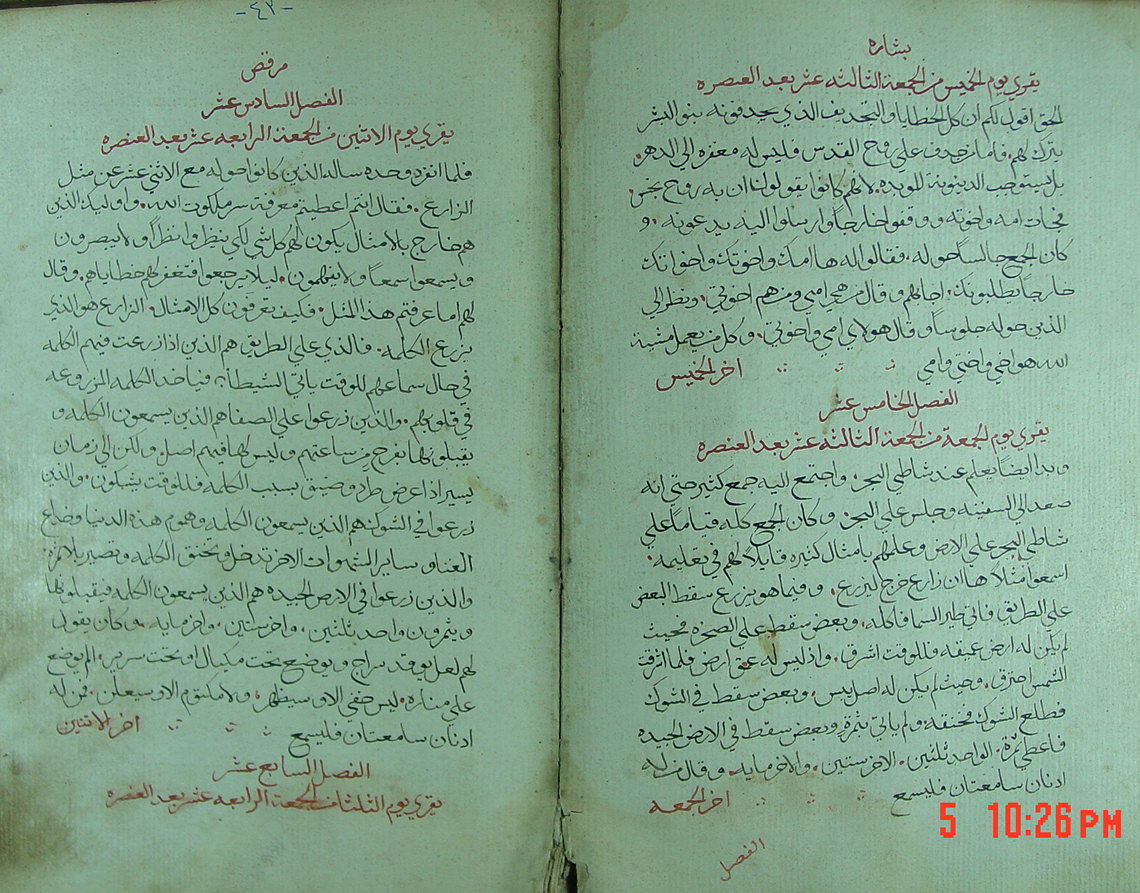 بشاره
يقري يوم الخميس من الجمعة الثالثه عشر بعد العنصره
الحق اقول لكم ان كل الخطايا والتجديف الذي يجدفونه بنو البشر
يترك لهم. فاما من جدف علي روح القدس فليس له مغفره الي الدهر
بل يستوجب الدينونة الموبده. لانهم كانوا يقولون ان به روح نجس
فجات امه واخوته ووقفوا خارجاً وارسلوا اليه يدعونه. و
كان الجمع جالساً حوله. فقالوا له ها امك واخوتك واخواتك
خارجاً يطلبونك. اجابهم وقال من هي امي ومن هم اخوتي. ونظر الي
الذين حوله جلوساً وقال هولاي امي واخوتي. وكل من يعمل مشية
الله هو اخي واختي وامي اخر الخميس
الفصل الخامس عشر
يقري يوم الجمعة من الجمعة الثالثه عشر بعد العنصره
وبدا ايضاً يعلم عند شاطي البحر. واجتمع اليه جمع كثير حتي انه
صعد الي السفينه وجلس علي البحر. وكان الجمع كله قياماً علي
شاطي البحر علي الارض وعلمهم بامثال كثيره قايلاً لهم في تعليمه.
اسمعوا مثلاً ها ان زارع خرج ليزرع. وفيما هو يزرع سقط البعض
علي الطريق. فاتي طير السما فاكله. وبعض سقط علي الصخره بحيث
لم يكن له ارض عميقه. فللوقت اشرق. واذ ليس له عمق ارض فلما اشرقت
الشمس احترق. وحيث لم يكن له اصل يبس. وبعض سقط في الشوك
فطلع الشوك فخنقه. ولم ياتي بثمرةٍ. وبعض سقط في الارض الجيده
فاعطي ثمرة. الواحد ثلثين. الاخر ستين. والاخر مايه. وقال من له
اذنان سامعتان فليسمع اخر الجمعه
الفصل
5 10:26PM
-٤٢-
مرقص
الفصل السادس عشر
يقري يوم الاثنين من الجمعة الرابعه عشر بعد العنصره
فلما انفرد وحده ساله الذين كانوا حوله مع الاثني عشر عن مثل
الزارع. فقال انتم اعطيتم معرفة سر ملكوت الله. واوليك الذين
هم خارج بالامثال يكون لهم كل شي لكي ينظروا نظراً ولا يبصرون
ويسمعوا سمعاً ولا يفهمون. ليلا يرجعوا فتغفر لهم خطاياهم. وقال
لهم اما عرفتم هذا المثل. فكيف تعرفون كل الامثال. الزارع هو الذي
يزرع الكلمه. فالذي علي الطريق هم الذين اذا زرعت فيهم الكلمه
في حال سماعهم للوقت ياتي الشيطان فياخذ الكلمه المزروعه
في قلوبهم. والذين زرعوا علي الصفا هم الذين يسمعون الكلمه و
يقبلونها بفرح من ساعتهم وليس لها فيهم اصل. ولكن الي زمان
يسير اذا عرض طرد وضيق بسبب الكلمه فللوقت يشكون. والذين
زرعوا في الشوك هم الذين يسمعون الكلمه وهموم هذه الدنيا وخداع
الغنا وساير الشهوات الاخر تدخل وتخنق الكلمه وتصير بلا ثمره.
والذين زرعوا في الارض الجيده هم الذين يسمعون الكلمه فيقبلونها
ويثمرون واحد ثلثين. واخر ستين. واخر مايه. وكان يقول
لهم لعل يوقد سراج ويوضع تحت مكيال او تحت سرير. الم يوضع
علي مناره. ليس خفي الا وسيظهر. ولا مكتوم الا وسيعلن. فمن له
اذنان سامعتان فليسمع اخر الاثنين
الفصل السابع عشر
يقري يوم الثلثا من الجمعة الرابعه عشر بعد العنصره